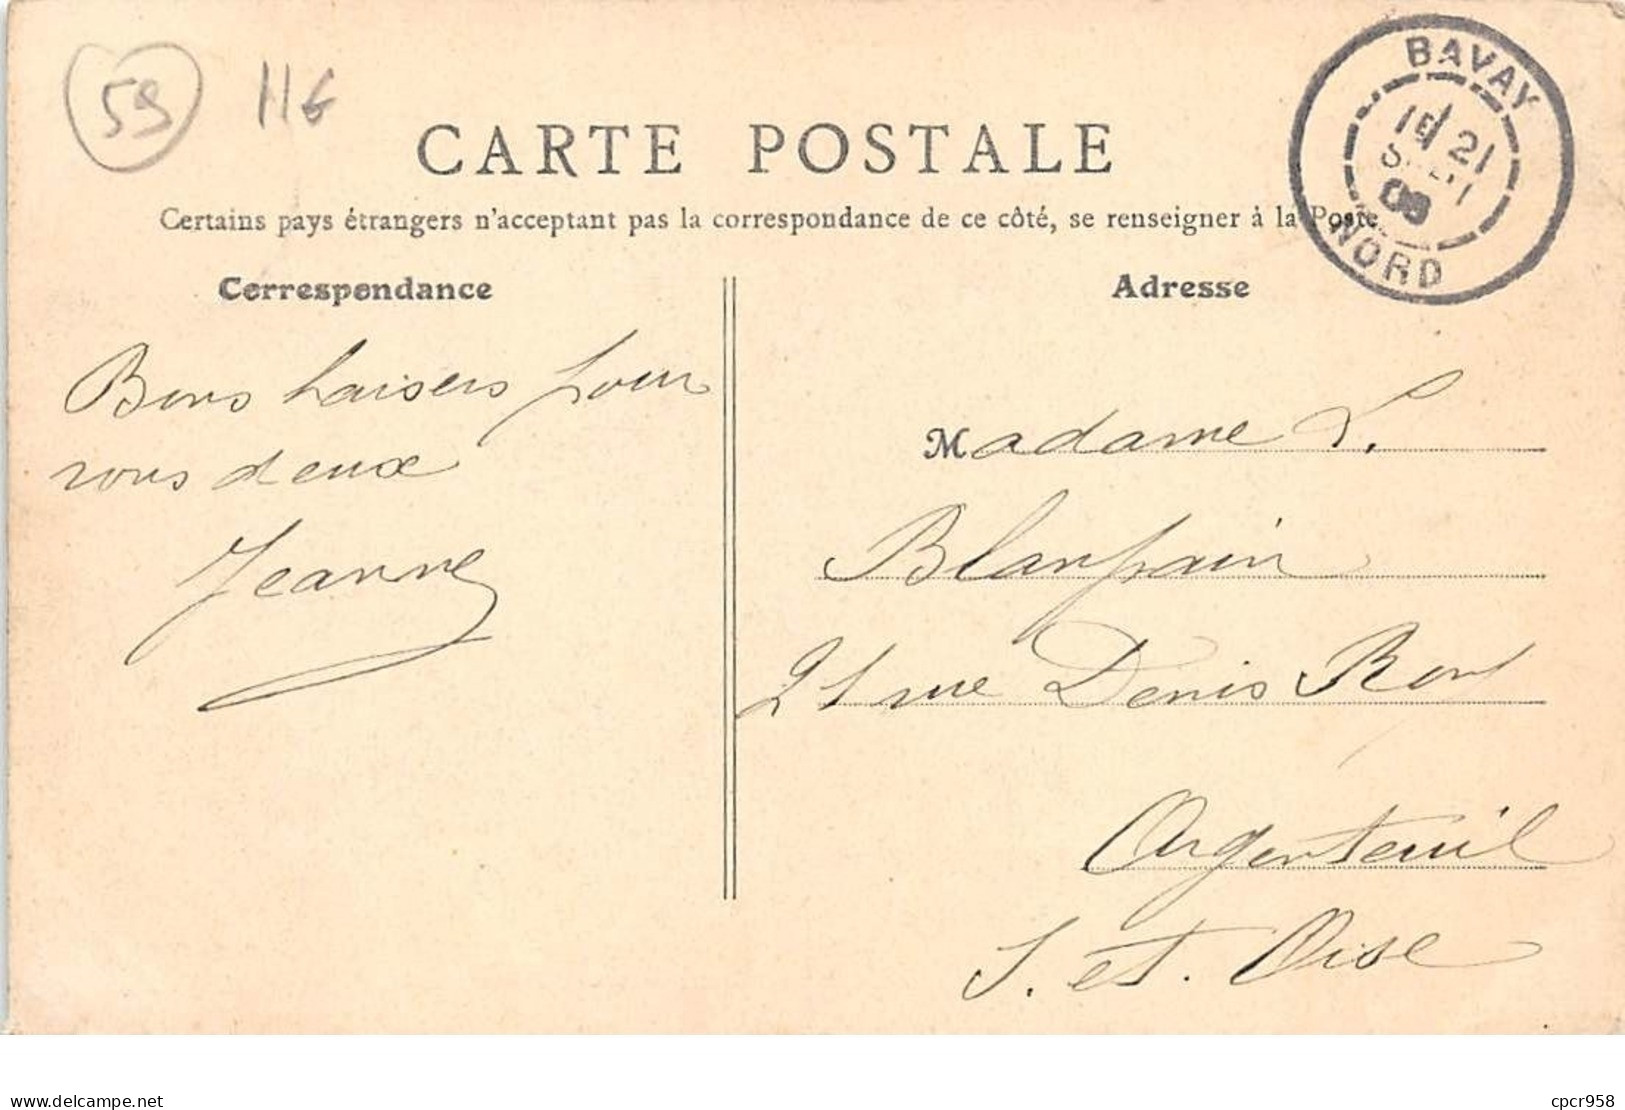 59 116
CARTE POSTALE
Certains pays étrangers n'acceptent pas la correspondance de ce côté, se renseigner à la Poste
BAVAY
21
NORD
Correspondance
Adresse
Bons baisers pour
vous deux
Jeanne
Madame L.
Blanpain
21 rue Denis Roy
Argenteuil
S. et. Oise
delcampe.net
cpcr958